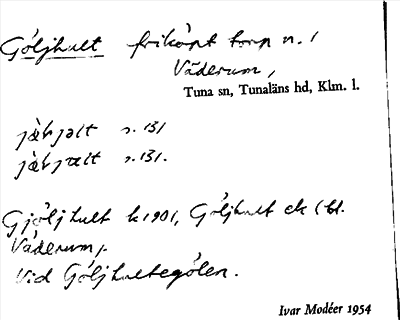 Göljhult friköpt torp n. 1
Väderum,
Tuna sn, Tunaläns hd, Klm. l.
s. 131
s. 131.
Gjöljhult k 1901, Göljhult ek (bl.
Väderum).
Vid Göljhultegölen.
Ivar Modéer 1954